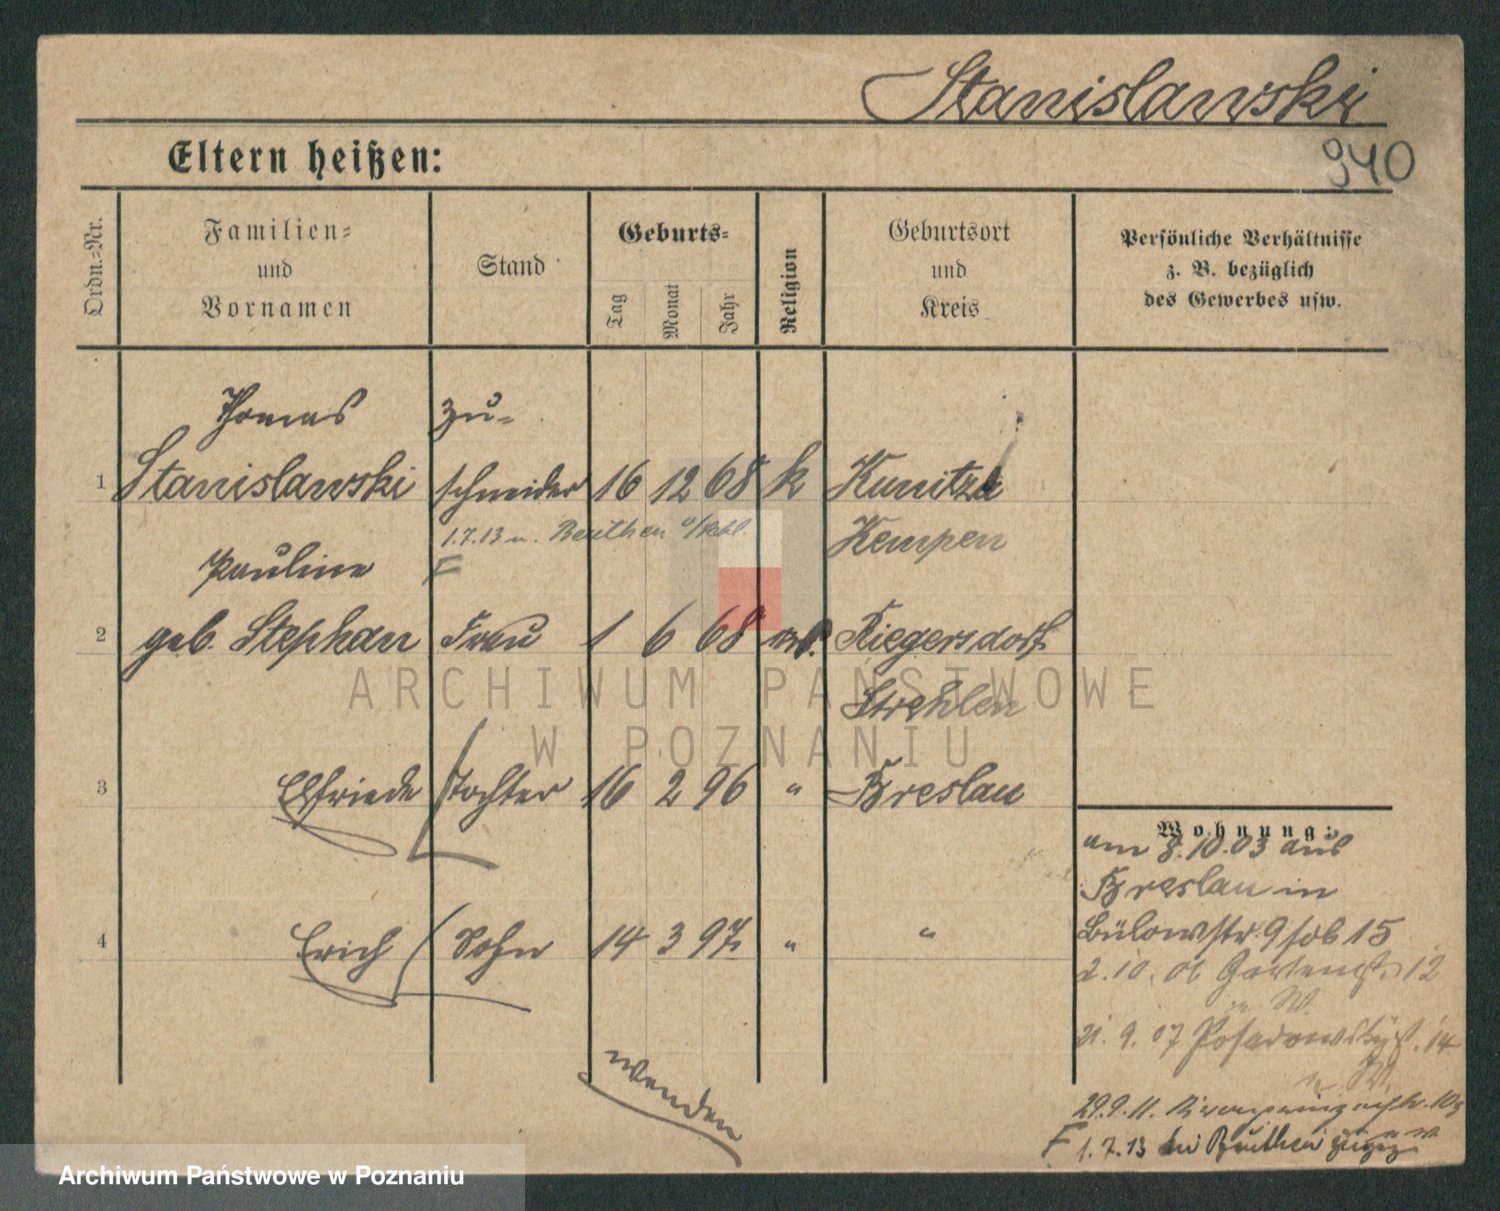 Stanislawski
940
Eltern heißen:
Ordn.-Nr.
Familien- und Vornamen
Stand
Geburts-
Tag
Monat
Jahr
Religion
Geburtsort und Kreis
Persönliche Verhältnisse
z. B. bezüglich
des Gewerbes usw.
Thomas Zu-
1 Stanislawski schneider 16 12 68 k Kunitza
1.7.13 n. Beuthen Kempen
Pauline F
2 geb. Stephan Frau 1 6 68 Riegersdorf
ARCHIWUM PAŃSTWOWE
Strehlen
W POZNANIU
3 Elfriede Tochter 16 2 96 " Breslau
Wohnung:
am 8.10.03 aus
Breslau in
4 Erich Sohn 14 3 97 " "
Bülowstr. 9 15
2.10.06 Gartenstr. 12
in W.
21.9.07 Posadowskystr. 14
in W.
wenden
29.9.11. Kronprinzenstr.
F 1.7.13 Beuthen
Archiwum Państwowe w Poznaniu